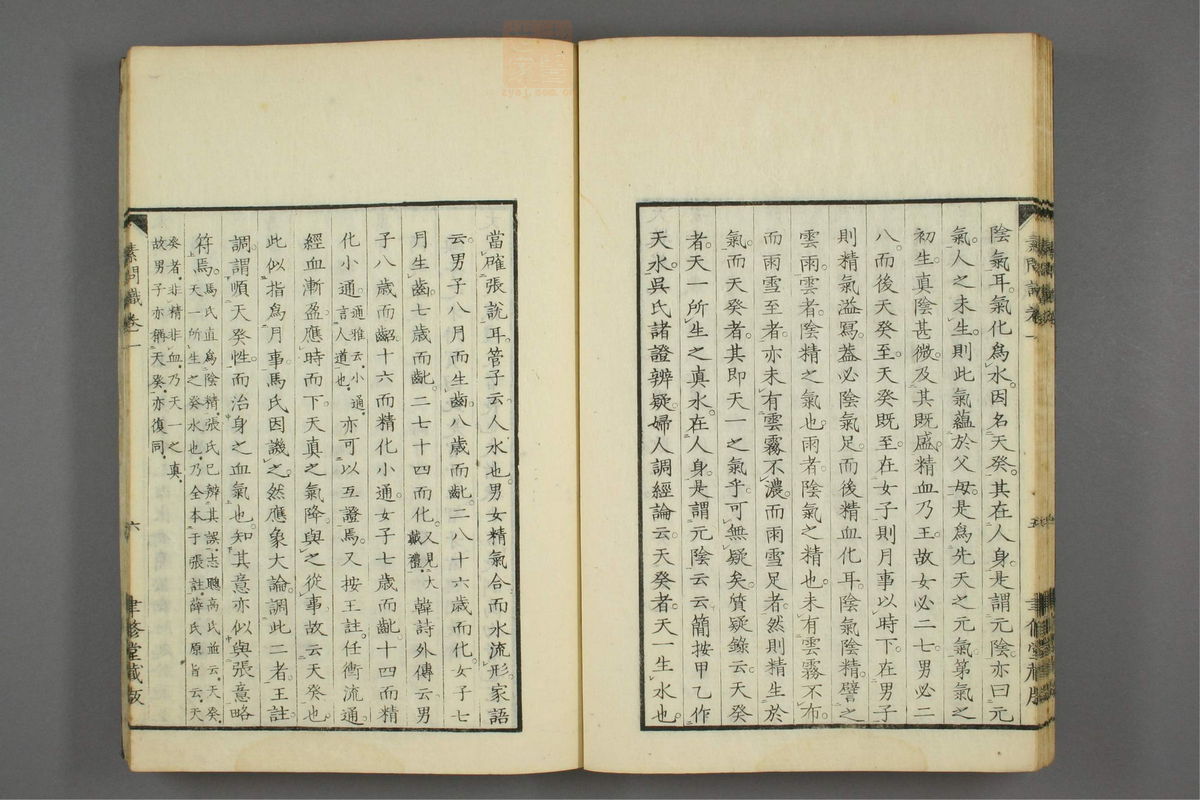 陰氣耳。氣化爲水。因名天癸。其在人身。是謂元陰。亦曰元
氣。人之未生。則此氣蘊於父母。是爲先天之元氣。第氣之
初生。真陰甚微。及其既盛。精血乃王。故女必二七男必二
八。而後天癸至。天癸既至。在女子則月事以時下。在男子
則精氣溢寫。蓋必陰氣足。而後精血化耳。陰氣陰精。譬之
雲雨。雲者。陰精之氣也。雨者。陰氣之精也。未有雲霧不布。
而雨雪至者。亦未有雲霧不濃。而雨雪足者。然則精生於
氣。而天癸者。其即天一之氣乎。可無疑矣。質疑錄云。天癸
者。天一所生之真水。在人身。是謂元陰云云。簡按甲乙作
天水。吳氏諸證辨疑。婦人調經論云。天癸者。天一生水也。
素問識卷一
五
聿修堂藏版
當確張說耳。管子云。人水也。男女精氣合。而水流形。家語
云。男子八月而生齒。八歲而齔。二八十六歲而化。女子七
月生齒。七歲而齔。二七十四而化。又見大戴禮。韓詩外傳云。男
子八歲而齠。十六而精化小通。女子七歲而齔。十四而精
化小通。通雅云。小通。言人道也。亦可以互證焉。又按王註。任衝流通。
經血漸盈。應時而下。天真之氣降。與之從事。故云天癸也。
此似指爲月事。馬氏因譏之。然應象大論。調此二者。王註
調。謂順天癸性。而治身之血氣也。知其意亦似與張意略
符焉。馬氏直爲陰精。張氏已辨其誤。志聰高氏並云。天癸。天一所生之癸水也。乃全本于張註。薛氏原旨云。天
癸者。非精非血。乃天一之真。故男子亦稱天癸。亦復同。
素問識卷一
六
聿修堂藏版